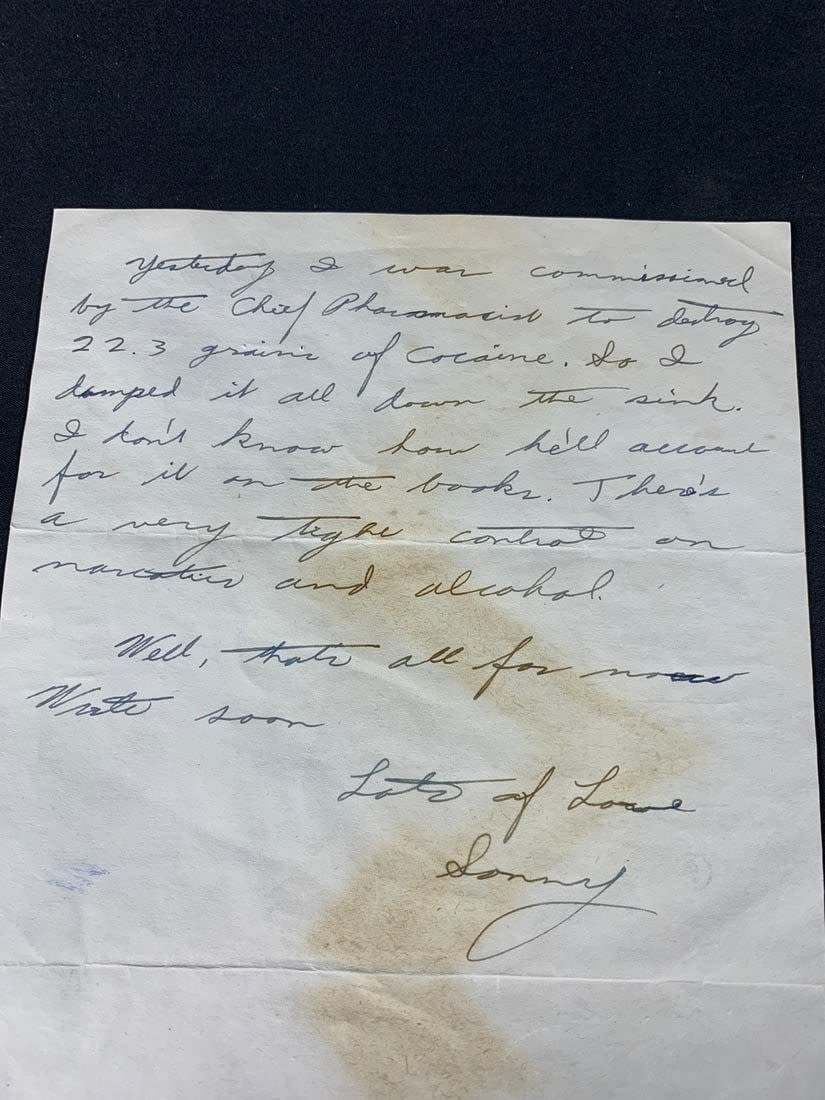 Yesterday I was commissioned
by the Chief Pharmacist to destroy
22.3 grains of Cocaine. So I
dumped it all down the sink.
I don't know how he'll account
for it on the books. There's
a very tight control on
narcotics and alcohol.
Well, thats all for now
Write soon
Lots of Love
Sonny